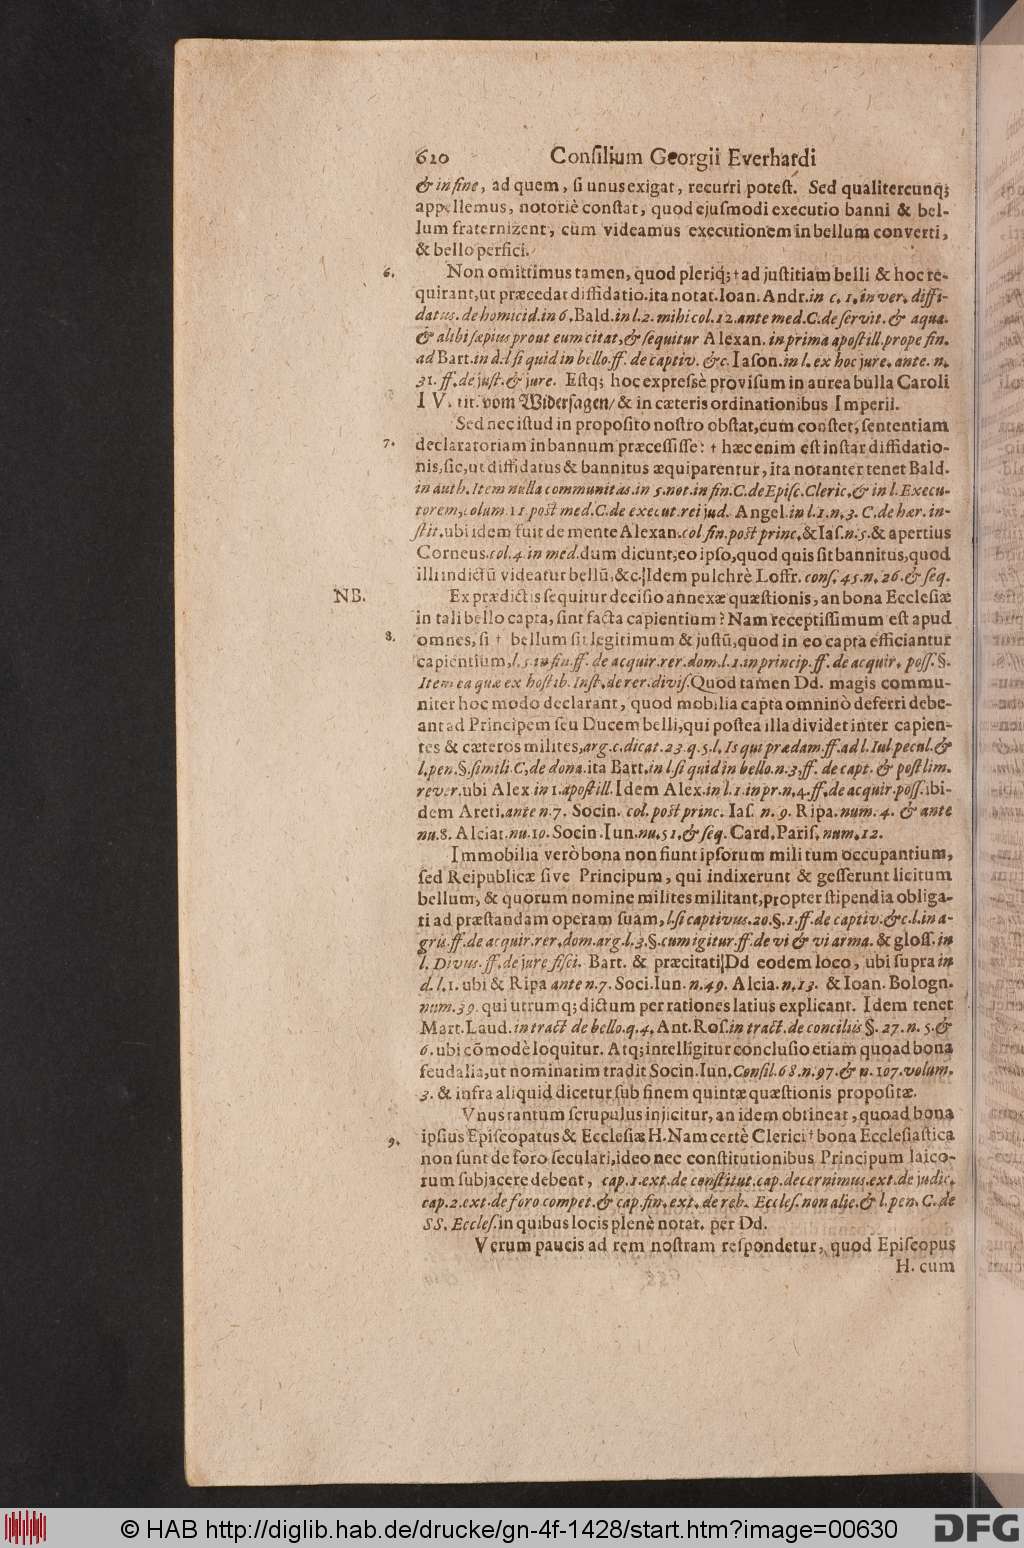 620 Conſilium Georgii Everhardi
& in fine, ad quem, ſi unus exigat, recurri poteſt. Sed qualitercunq;
appellemus, notoriè conſtat, quod ejuſmodi executio banni & bel-
lum fraternizent, cum videamus executionem in bellum converti,
& bello perfici.
6. Non omittimus tamen, quod pleriq; † ad juſtitiam belli & hoc re-
quirant, ut præcedat diffidatio. ita notat. Ioan. Andr. in c. 1. in ver. diffi-
datus. de homicid. in 6. Bald. in l. 2. mihi col. 12. ante med. C. de ſervit. & aqua.
& alibi ſæpius prout eum citat, & ſequitur Alexan. in prima apoſtill. prope fin.
ad Bart. in d. l ſi quid in bello. ff. de captiv. &c. Iaſon. in l. ex hoc jure. ante. n.
31. ff. de juſt. & jure. Eſtq; hoc expreſsè proviſum in aurea bulla Caroli
IV. tit. vom Widerſagen/ & in cæteris ordinationibus Imperii.
Sed nec iſtud in propoſito noſtro obſtat, cum conſtet, ſententiam
7. declaratoriam in bannum præceſſiſſe: † hæc enim eſt inſtar diffidatio-
nis, ſic, ut diffidatus & bannitus æquiparentur, ita notanter tenet Bald.
in auth. Item nulla communitas. in 5. not. in fin. C. de Epiſc. Cleric. & in l. Execu-
torem, colum. 11 poſt med. C. de execut. rei jud. Angel. in l. 1. n. 3. C. de hær. in-
ſtit. ubi idem fuit de mente Alexan. col fin. poſt princ. & Iaſ. n. 5. & apertius
Corneus. col. 4 in med. dum dicunt, eo ipſo, quod quis ſit bannitus, quod
illi indictũ videatur bellũ, &c. Idem pulchrè Loffr. conſ. 45. n. 26. & ſeq.
NB. Ex prædictis ſequitur deciſio annexæ quæſtionis, an bona Eccleſiæ
in tali bello capta, ſint facta capientium? Nam receptiſſimum eſt apud
8. omnes, ſi † bellum ſit legitimum & juſtũ, quod in eo capta efficiantur
capientium, l. 5. in fin. ff. de acquir. rer. dom. l. 1. in princip. ff. de acquir. poſſ. §.
Item ea quæ ex hoſtib. Inſt. de rer. diviſ. Quod tamen Dd. magis commu-
niter hoc modo declarant, quod mobilia capta omninò deferri debe-
ant ad Principem ſeu Ducem belli, qui poſtea illa dividet inter capien-
tes & cæteros milites, arg. c. dicat. 23. q. 5. l. Is qui prædam. ff. ad l. Iul pecul. &
l. pen. §. ſimili. C. de dona. ita Bart. in l ſi quid in bello. n. 3. ff. de capt. & poſt lim.
rever. ubi Alex in 1. apoſtill. Idem Alex. in l. 1. in pr. n. 4. ff. de acquir. poſſ. ibi-
dem Areti. ante n. 7. Socin. col. poſt princ. Iaſ. n. 9. Ripa. num. 4. & ante
nu. 8. Alciat. nu. 10. Socin. Iun. nu. 51. & ſeq. Card. Pariſ. num. 12.
Immobilia verò bona non fiunt ipſorum militum occupantium,
ſed Reipublicæ ſive Principum, qui indixerunt & geſſerunt licitum
bellum, & quorum nomine milites militant, propter ſtipendia obliga-
ti ad præſtandam operam ſuam, l. ſi captivus. 20. §. 1. ff. de captiv. & c. l. in a-
gris. ff. de acquir. rer. dom. arg. l. 3. §. cum igitur. ff. de vi & vi arma. & gloſſ. in
l. Divus. ff. de jure fiſci. Bart. & præcitati Dd eodem loco, ubi ſupra in
d. l. 1. ubi & Ripa ante n. 7. Soci. Iun. n. 49. Alcia. n. 13. & Ioan. Bologn.
num. 39. qui utrumq; dictum per rationes latius explicant. Idem tenet
Mart. Laud. in tract de bello. q. 4. Ant. Roſ. in tract. de conciliis §. 27. n. 5. &
6. ubi cõmodè loquitur. Atq; intelligitur concluſio etiam quoad bona
feudalia, ut nominatim tradit Socin. Iun. Conſil. 68. n. 97. & n. 107. volum.
3. & infra aliquid dicetur ſub finem quintæ quæſtionis propoſitæ.
Vnus tantum ſcrupulus injicitur, an idem obtineat, quoad bona
9. ipſius Epiſcopatus & Eccleſiæ H. Nam certè Clerici † bona Eccleſiaſtica
non ſunt de foro ſeculari, ideo nec conſtitutionibus Principum laico-
rum ſubjacere debent, cap. 1. ext. de conſtitut. cap. decernimus. ext. de judic.
cap. 2. ext. de foro compet. & cap. fin. ext. de reb. Eccleſ. non alie. & l. pen. C. de
SS. Eccleſ. in quibus locis plenè notat. per Dd.
Verum paucis ad rem noſtram reſpondetur, quod Epiſcopus
H. cum
© HAB http://diglib.hab.de/drucke/gn-4f-1428/start.htm?image=00630
DFG